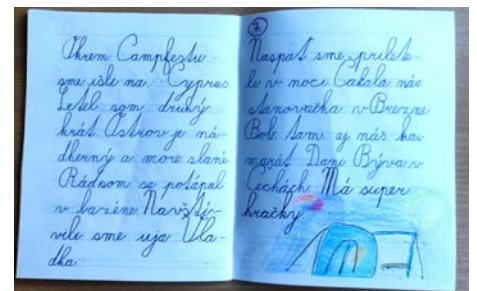 Okrem Campfestu
sme išle na Cyprus
Letel som druhý
krát. Ostrov je ná-
dherný a more slané
Rád som sa potápal
v bazéne. Navští-
vili sme uja Vla-
dka.
7
Naspäť sme prilete-
li v noci Čakala nás
stanovačka v Brezne
Bol tam aj náš ka-
marát Dani Býva v
Čechách. Má super
hračky.